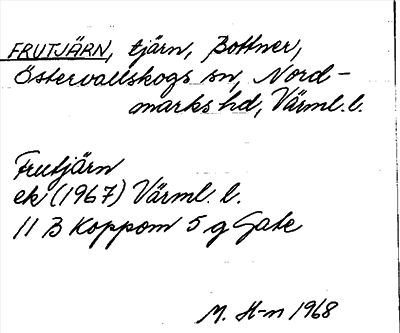 FRUTJÄRN, tjärn, Bottner,
Östervallskogs sn, Nord-
marks hd, Värml. l.
Frutjärn
ek (1967) Värml. l.
11 B Koppom 5 g Gate
M. H-n 1968